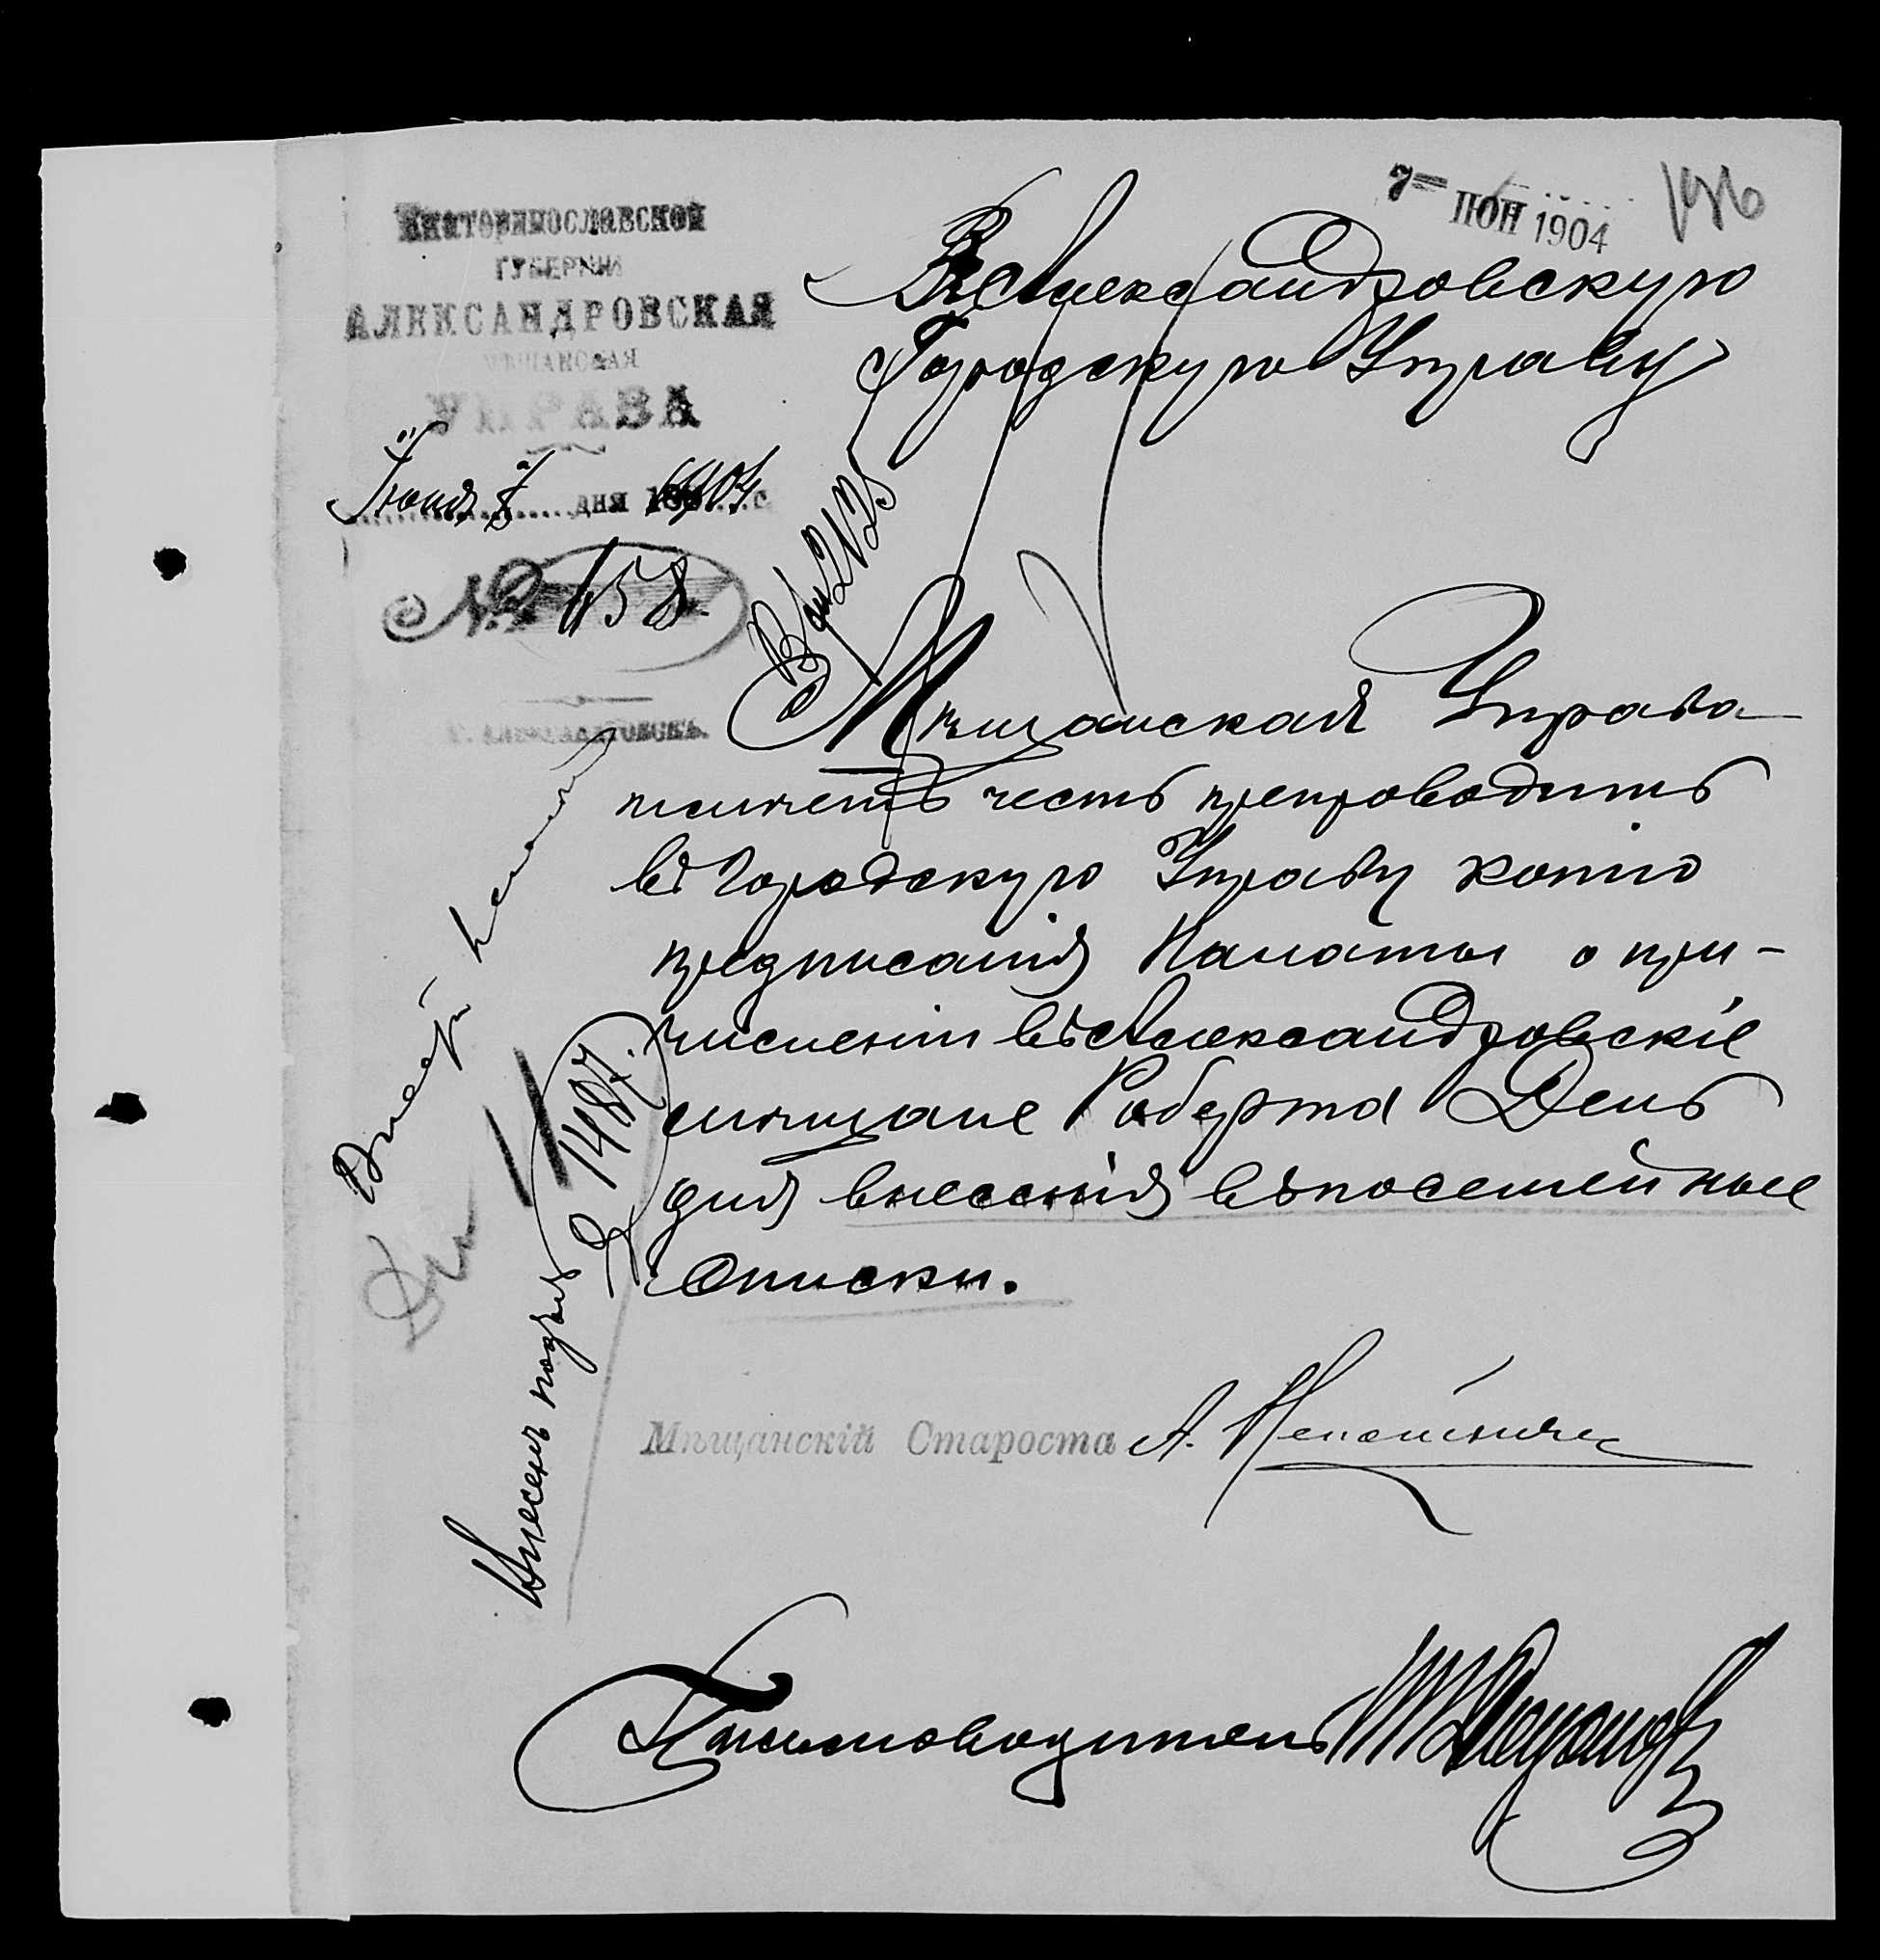 7 ІЮН 1904
Екатеринославской
ГУБЕРНИ
АЛЕКСАНДРОВСКАЯ
МѢЩАНСКАЯ
УПРАВА
Іюня дня 1904 г.
№ 658.
Г. АЛЕКСАНДРОВСКЪ.
Въ Александровскую
Городскую Управу
Мѣщанская Управа
имѣетъ честь препроводить
въ Городскую Управу копію
предписанія Палаты о при-
численіи въ Александровскіе
мѣщане Роберта День
для внесенія въ посемейные
списки.
Внесенъ подъ № 1487.
Мѣщанскій Староста А.
Письмоводитель